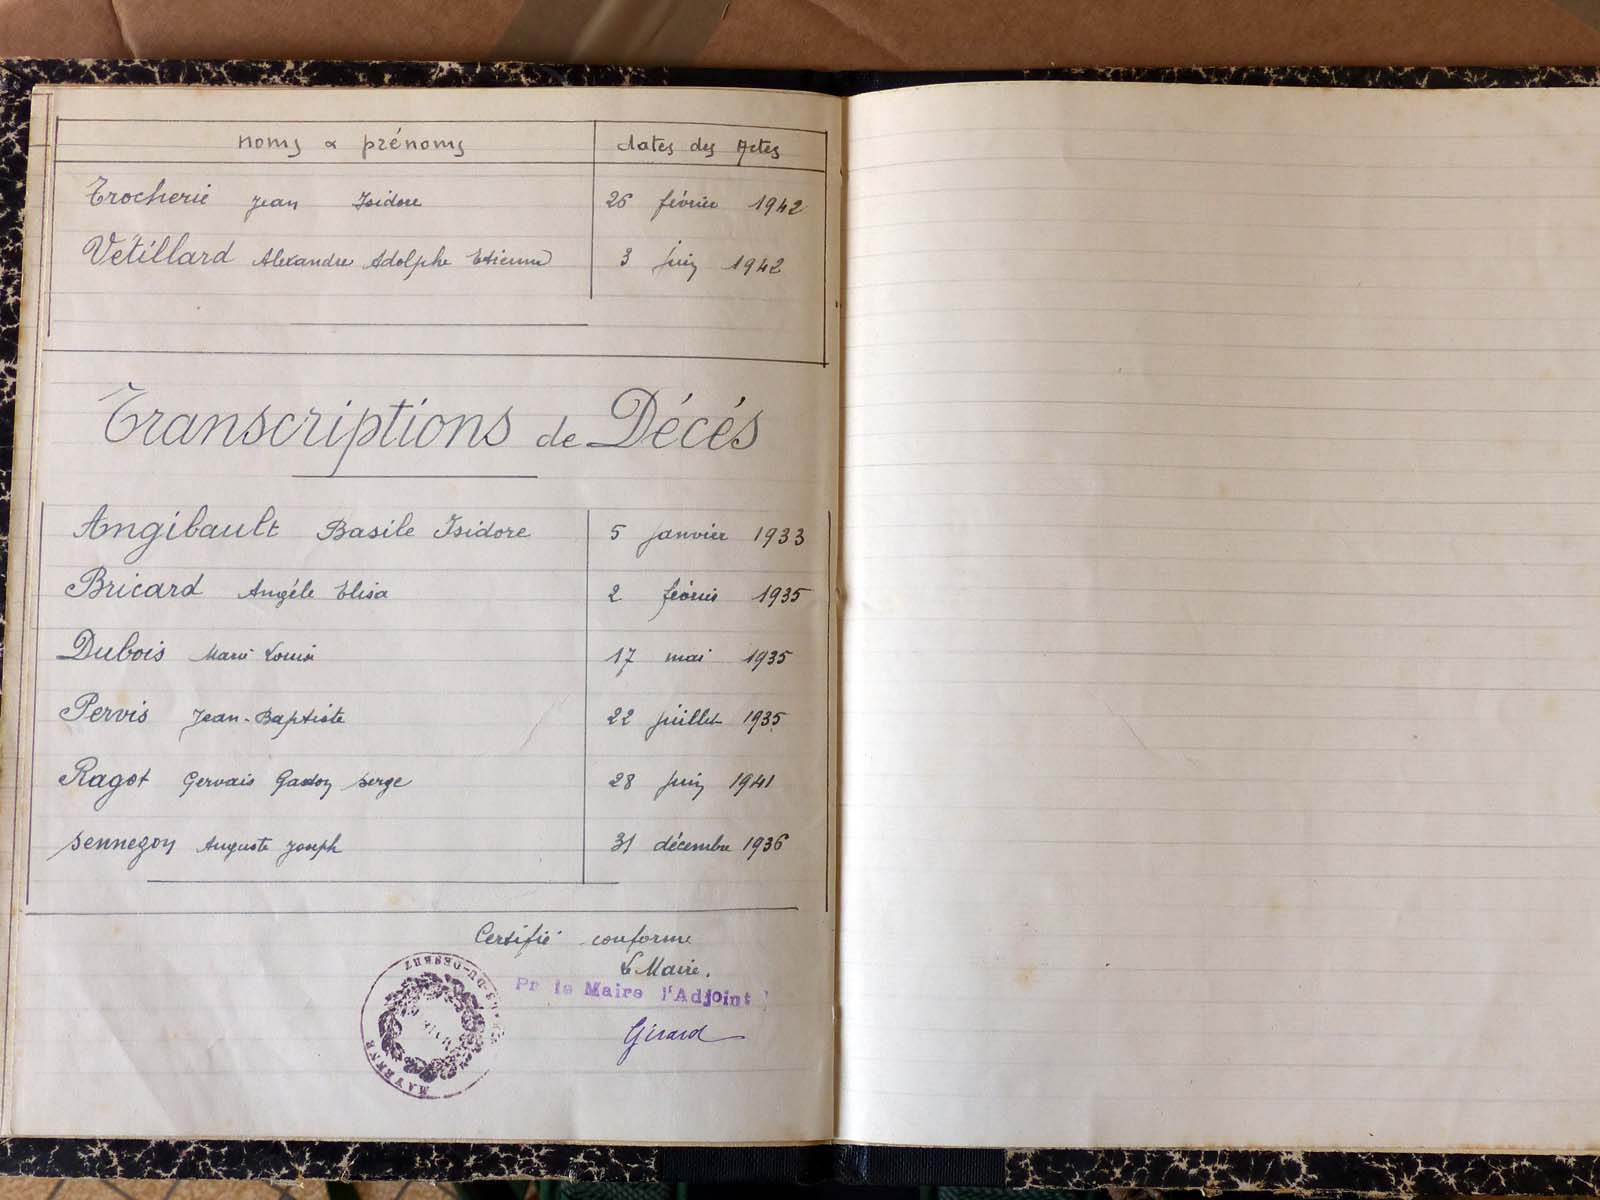 noms & prénoms dates des Actes
Trocherie Jean Isidore 26 février 1942
Vétillard Alexandre Adolphe Etienne 3 juin 1942
Transcriptions de Décés
Angibault Basile Isidore 5 janvier 1933
Bricard Angéle Elisa 2 février 1935
Dubois Marie Louise 17 mai 1935
Pervis Jean-Baptiste 22 juillet 1935
Ragot Gervais Gaston Serge 28 juin 1941
Sennegon Auguste Joseph 31 décembre 1936
Certifié conforme
Le Maire,
Pr le Maire l'Adjoint
Girard
MAYENNE